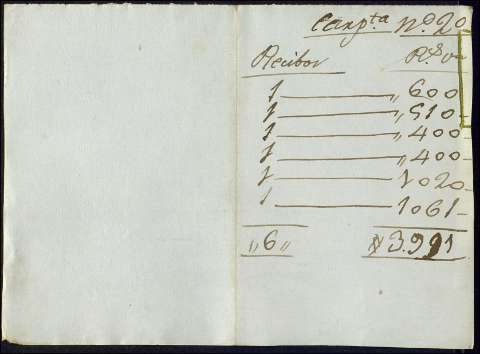 Carp.ta nº 20
Recibos R.s v.n
1 — „ 600
1 — „ 510
1 — „ 400
1 — „ 400
1 — 1020
1 — 1061
„ 6 „ 3.991